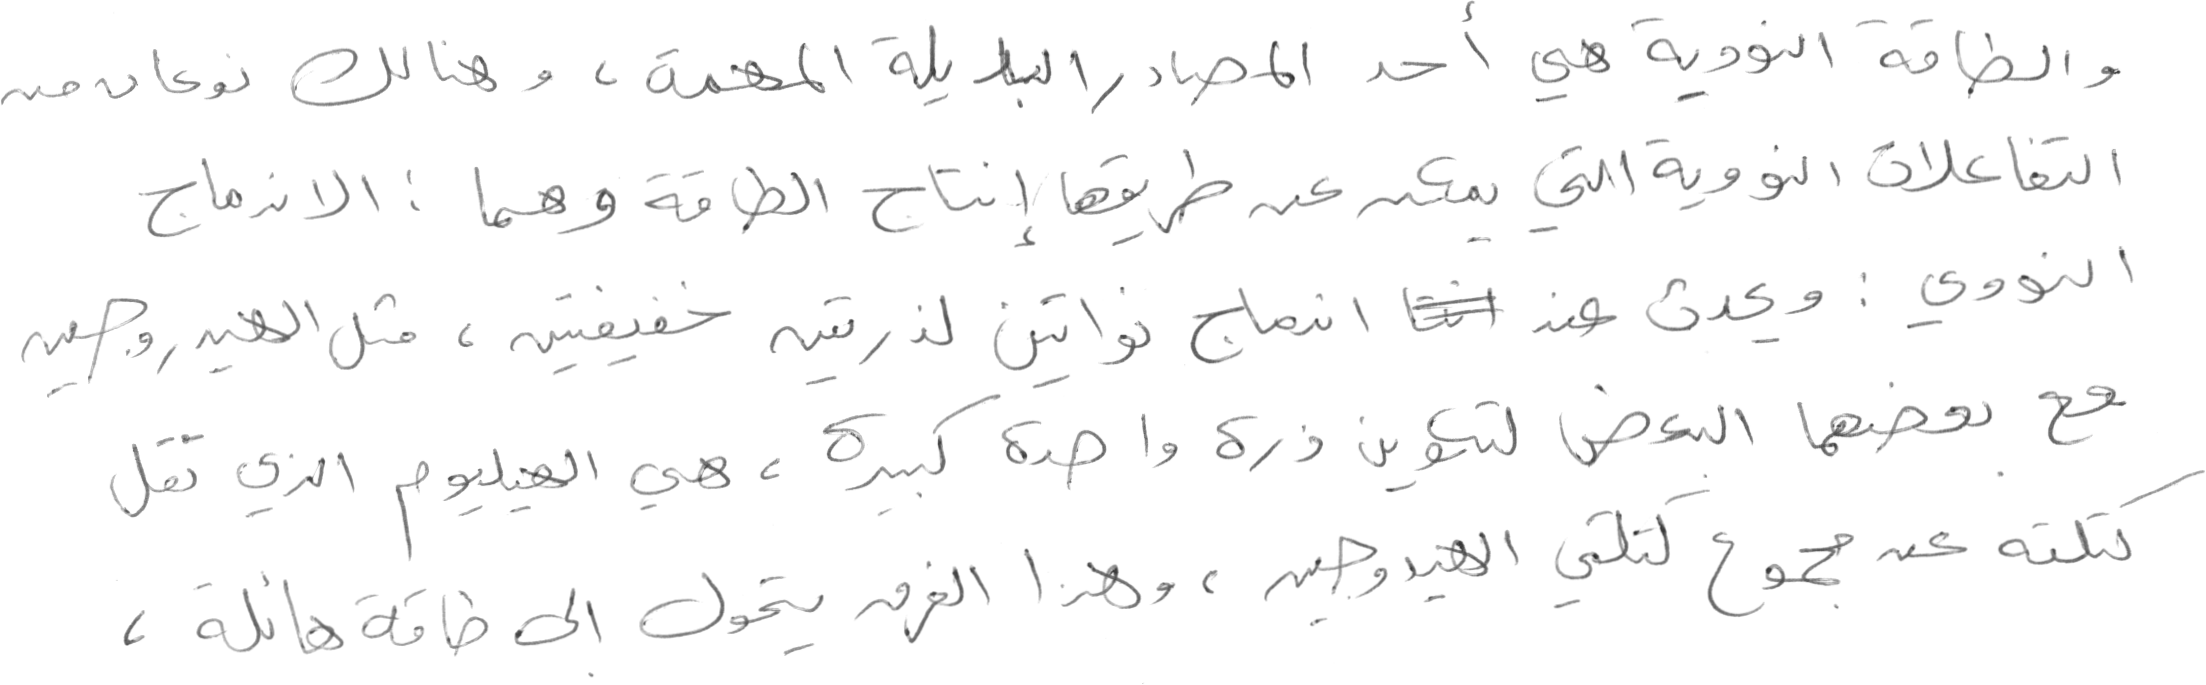 والطاقة النووية هي أحد المصادر البديلة المهمة ، وهنالك نوعان من
التفاعلات النووية التي يمكن عن طريقها إنتاج الطاقة وهما : الاندماج
النووي : ويحدث عند اندماج نواتين لذرتين خفيفتين ، مثل الهيدروجين
مع بعضهما البعض لتكوين ذرة واحدة كبيرة ، هي الهيليوم الذي تقل
كتلته عن مجموع كتلتي الهيدروجين ، وهذا الفرق يتحول إلى طاقة هائلة ،